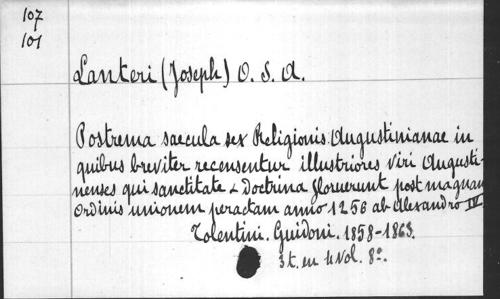 107
101
Lanteri (Joseph) O. S. A.
Postrema saecula sex Religionis Augustinianae in
quibus breviter recensentur illustriores viri Augusti-
nenses qui sanctitate & Doctrina floruerunt post magnam
Ordinis unionem peractam anno 1256 ab Alexandro IV
Tolentini. Guidoni. 1858-1863.
3 t. en 4 vol. 8º.